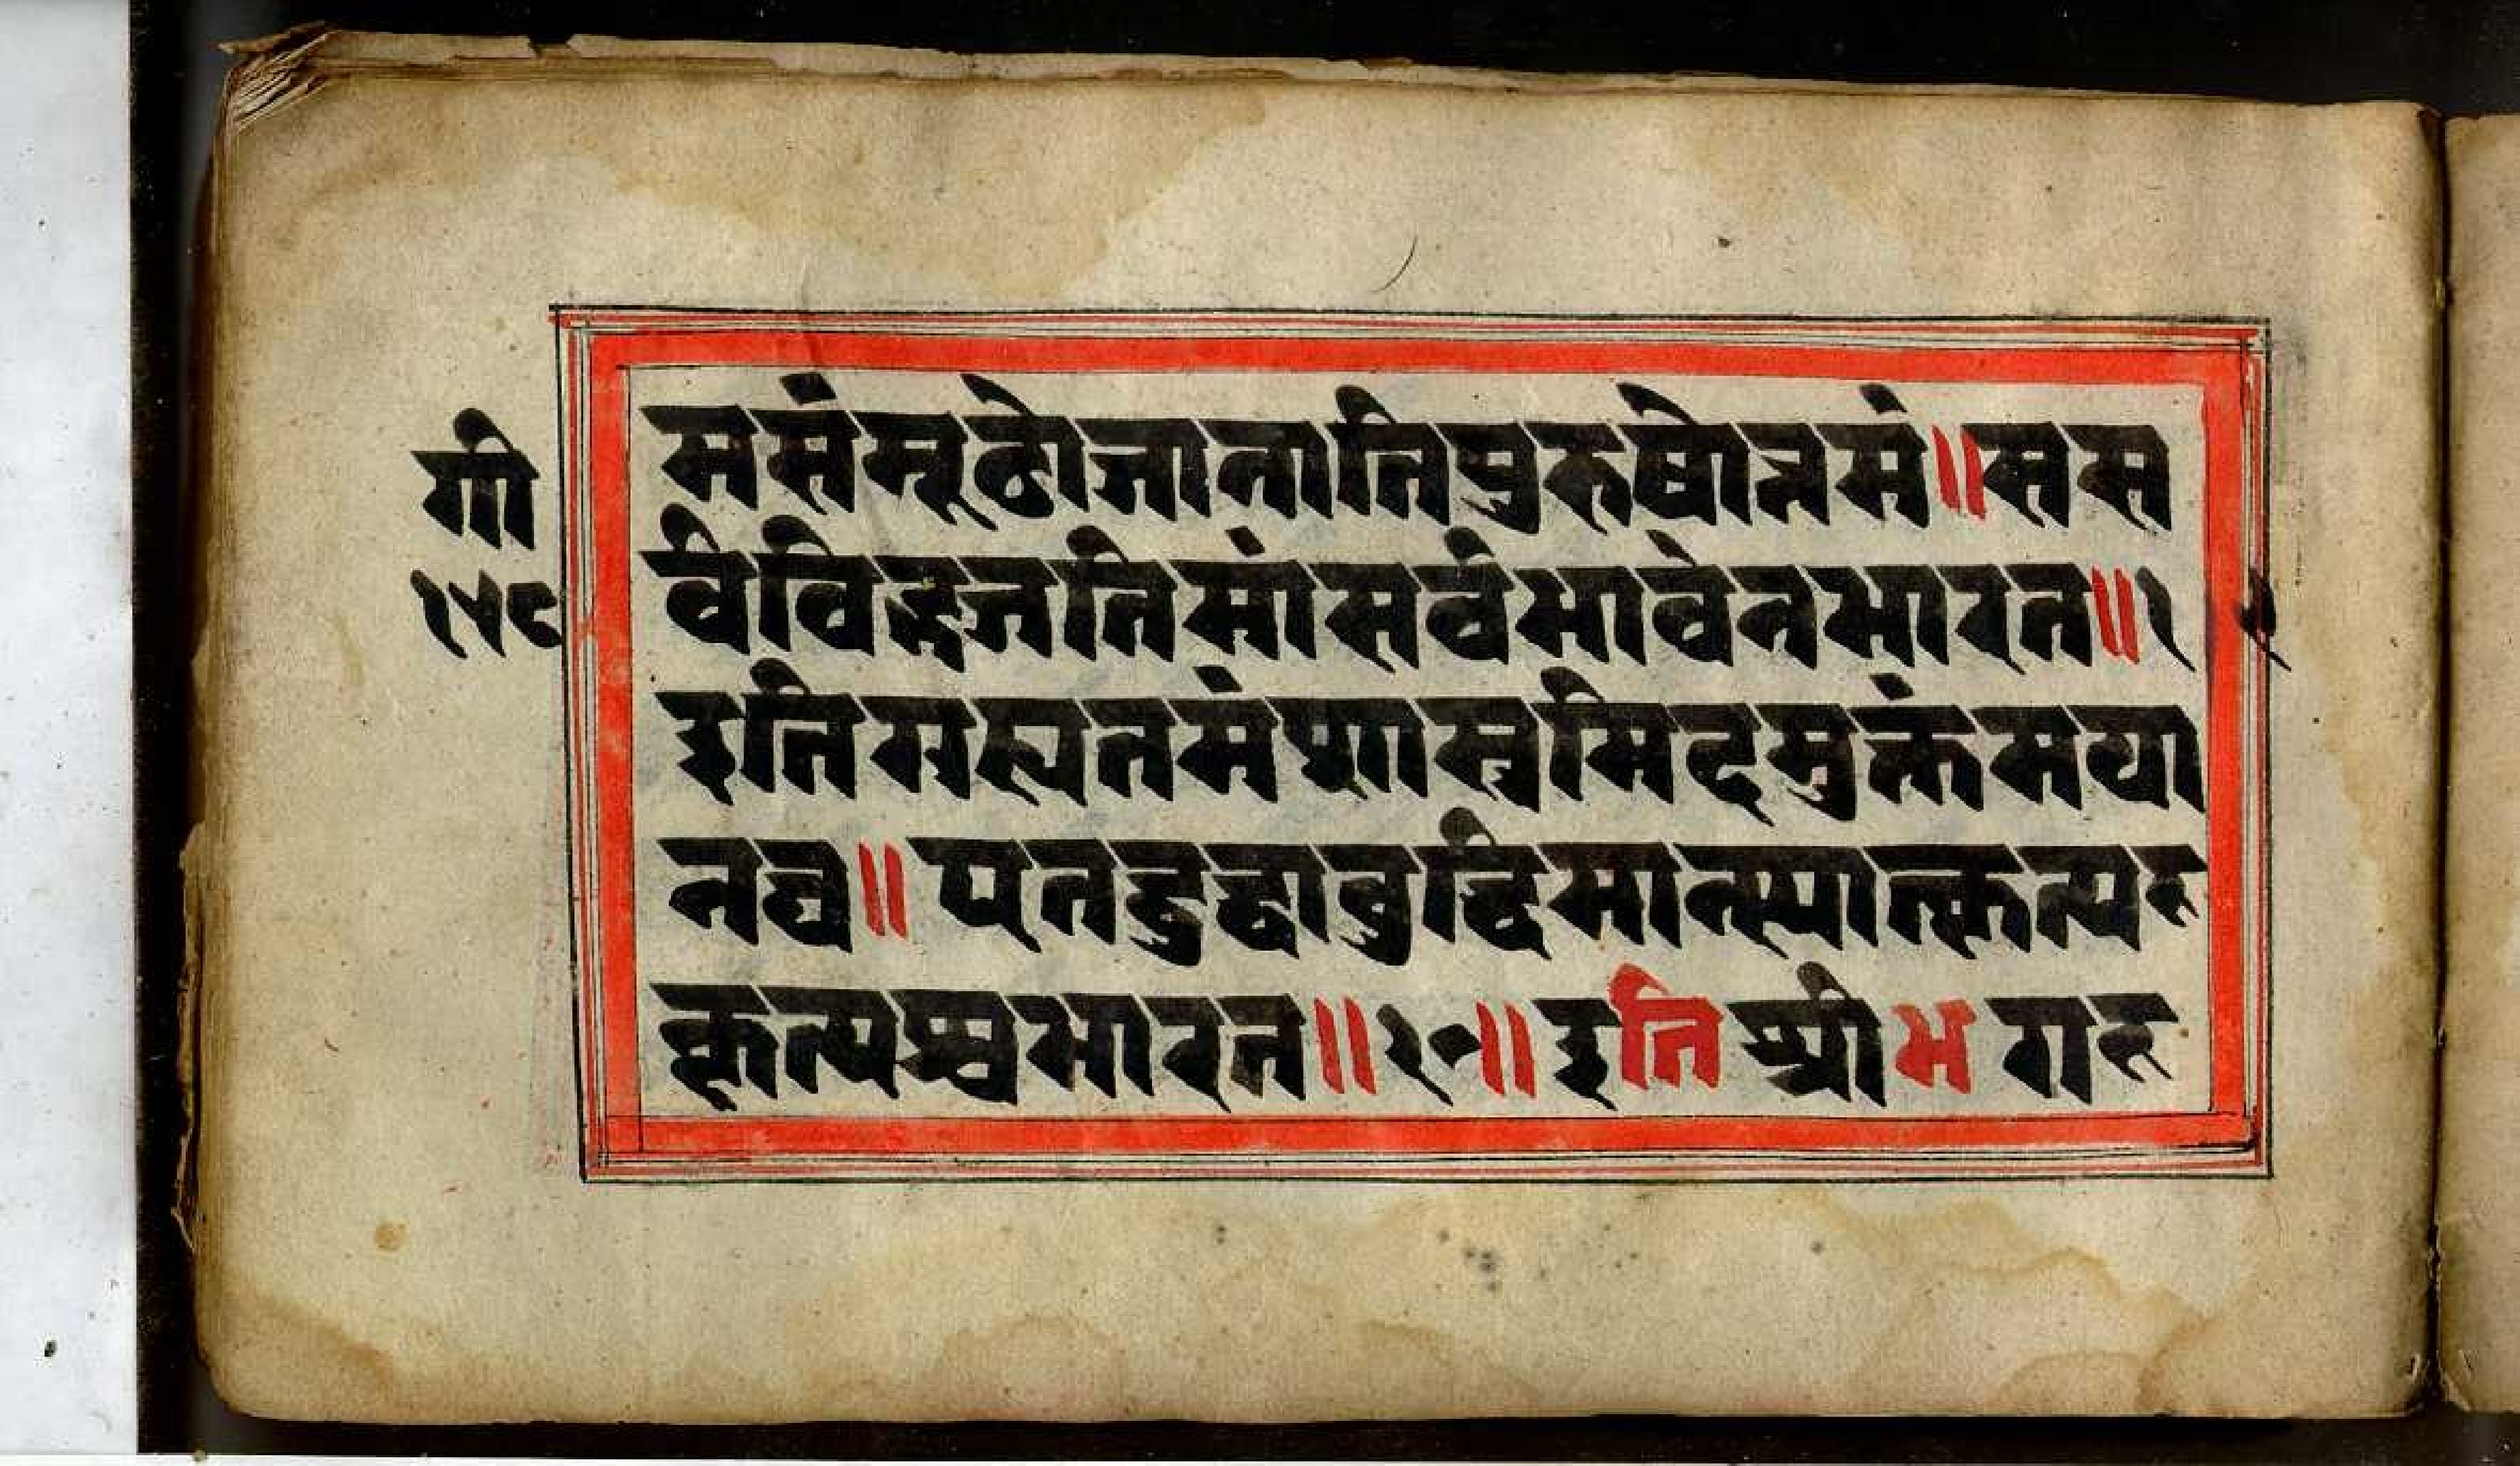 मसंमूढोजानातिपुरुषोत्तमं॥सस
र्वविद्भजतिमांसर्वभावेनभारत॥१
इतिगुह्यतमंशास्त्रमिदमुक्तंमया
नघ॥एतद्बुद्ध्वाबुद्धिमान्स्यात्कृतकृ
कृत्यश्चभारत॥२०॥इतिश्रीभगव
गी
१५८